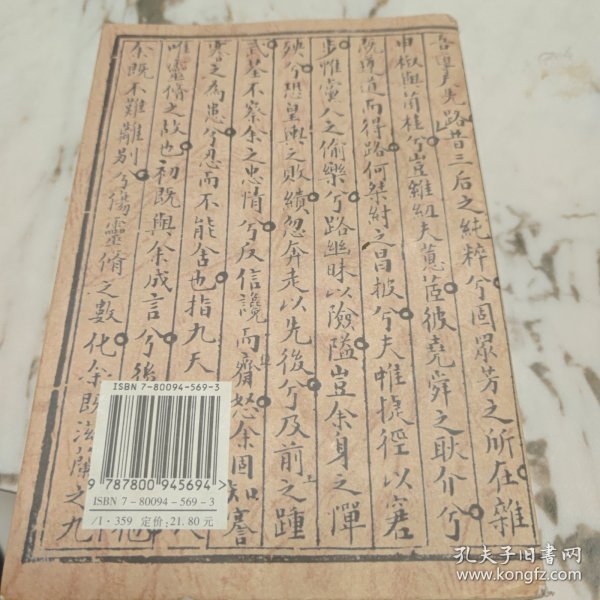 吾導夫先路昔三后之純粹兮固眾芳之所在雜
申椒與菌桂兮豈維紐夫蕙茝彼堯舜之耿介兮
既遵道而得路何桀紂之昌披兮夫唯捷徑以窘
步惟黨人之偷樂兮路幽昧以險隘豈余身之憚
殃兮恐皇輿之敗績忽奔走以先後兮及前王之踵
武荃不察余之忠情兮反信讒而齌怒余固知謇
謇之為患兮忍而不能舍也指九天
唯靈脩之故也初既與余成言兮後
余既不難離別兮傷靈脩之數化余既滋蘭之九
ISBN 7-80094-569-3
9 787800 945694 >
ISBN 7 - 80094 - 569 - 3
/I·359 定价:21.80元
孔夫子旧书网
www.kongfz.com